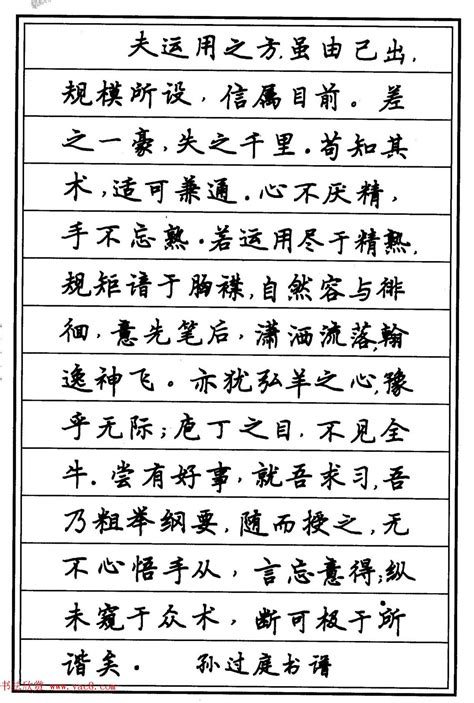 夫运用之方,虽由己出,
规模所设，信属目前。差
之一豪，失之千里。苟知其
术，适可兼通。心不厌精，
手不忘熟。若运用尽于精熟,
规矩谙于胸襟，自然容与徘
徊，意先笔后，潇洒流落,翰
逸神飞。亦犹弘羊之心,豫
乎无际；庖丁之目，不见全
牛。尝有好事，就吾求习,吾
乃粗举纲要，随而授之，无
不心悟手从，言忘意得;纵
未窥于众术，断可极于所
谐矣。 孙过庭书谱
书法欣赏 www.yac8.com